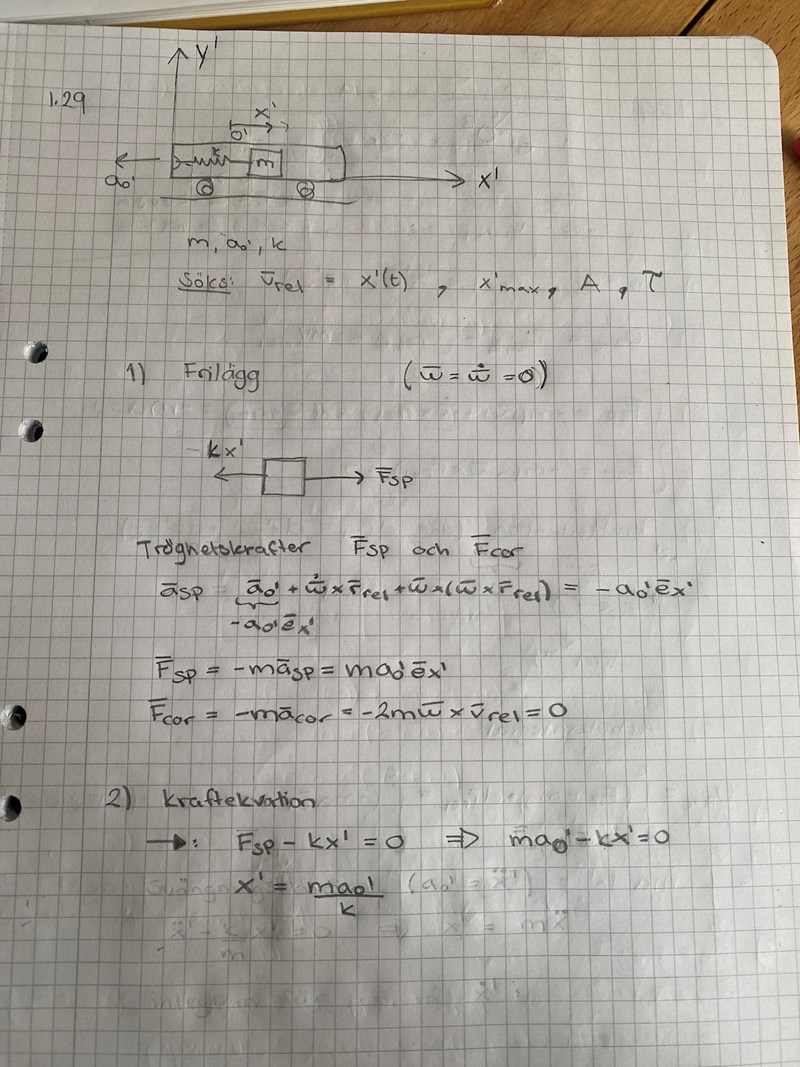 y'
1.29
x'
0'
k
m
a₀'
x'
m, a₀', k
Söks: v̄rel = x'(t) , x'max, A , τ
1) Frilägg (ω̄ = ω̄̇ = 0)
kx'
F̄sp
Tröghetskrafter F̄sp och F̄cor
āsp = ā₀' + ω̄̇ × r̄rel + ω̄ × (ω̄ × r̄rel) = -a₀'ēx'
-a₀'ēx'
F̄sp = -māsp = ma₀'ēx'
F̄cor = -mācor = -2mω̄ × v̄rel = 0
2) Kraftekvation
→: Fsp - kx' = 0 ⇒ ma₀' - kx' = 0
x' = ma₀'/k (a₀' = ẍ')